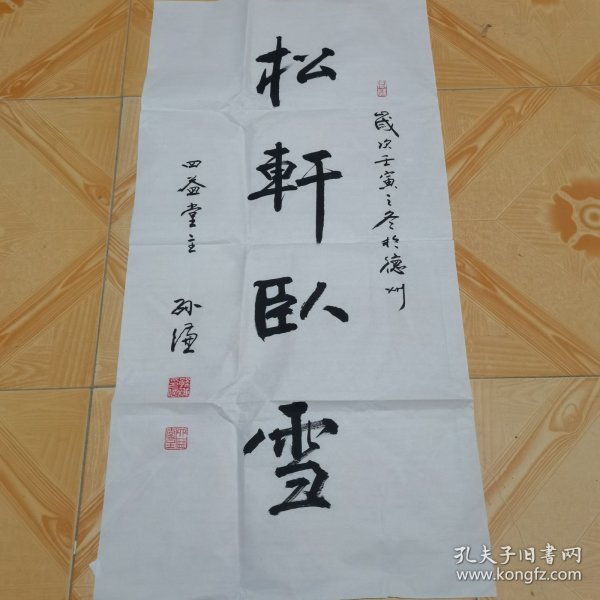 松軒臥雪
歲次壬寅之冬於德州
四益堂主 孙谨
孔夫子旧书网
www.kongfz.com